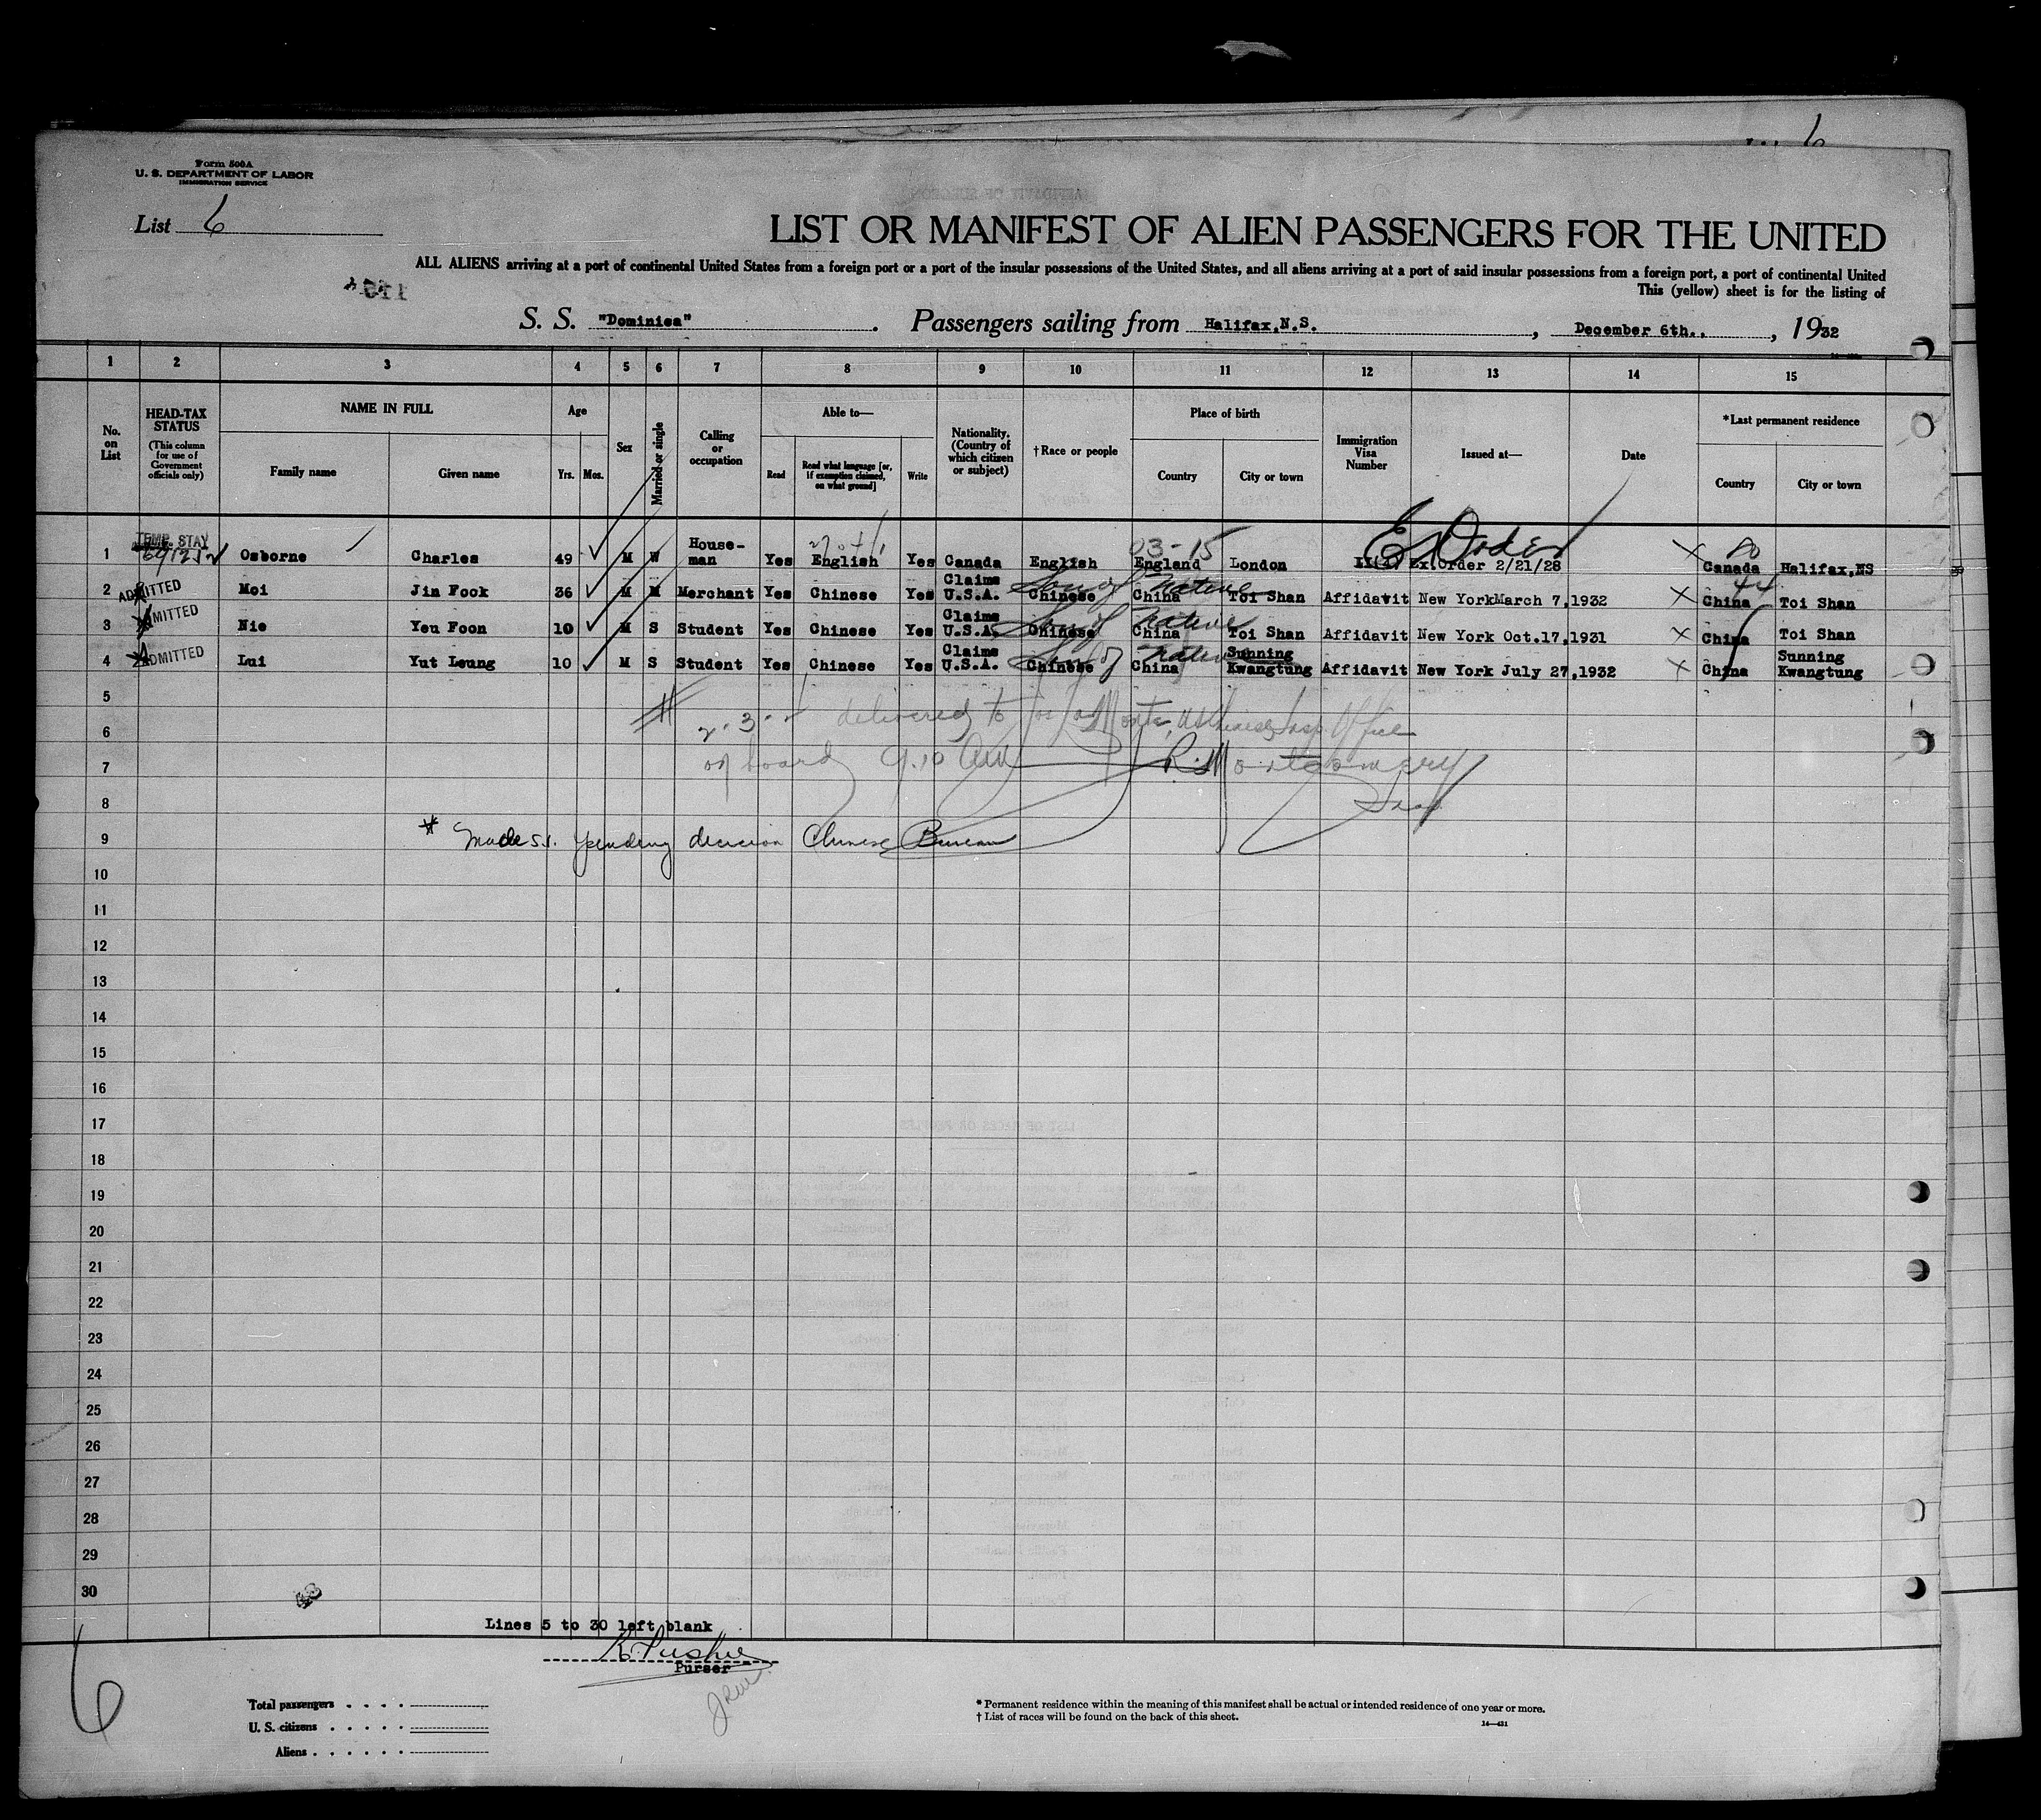 6
Form 500A
U. S. DEPARTMENT OF LABOR
IMMIGRATION SERVICE
List 6
LIST OR MANIFEST OF ALIEN PASSENGERS FOR THE UNITED
ALL ALIENS arriving at a port of continental United States from a foreign port or a port of the insular possessions of the United States, and all aliens arriving at a port of said insular possessions from a foreign port, a port of continental United
This (yellow) sheet is for the listing of
S. S. "Dominica". Passengers sailing from Halifax,N.S., December 6th., 1932
1 2 3 4 5 6 7 8 9 10 11 12 13 14 15
No. on List
HEAD-TAX STATUS (This column for use of Government officials only)
NAME IN FULL Family name Given name
Age Yrs. Mos.
Sex
Married or single
Calling or occupation
Able to— Read Read what language [or, if exemption claimed, on what ground] Write
Nationality. (Country of which citizen or subject)
†Race or people
Place of birth Country City or town
Immigration Visa Number
Issued at—
Date
*Last permanent residence Country City or town
TEMP. STAY
03-15
1 Osborne Charles 49 M W House-man Yes English Yes Canada English England London Ex.Order 2/21/28 Canada Halifax,NS
2 ADMITTED Moi Jin Fook 36 M M Merchant Yes Chinese Yes Claims U.S.A. Chinese Son of Native China Toi Shan Affidavit New York March 7,1932 China Toi Shan
3 ADMITTED Nie Yeu Foon 10 M S Student Yes Chinese Yes Claims U.S.A. Chinese Son of Native China Toi Shan Affidavit New York Oct.17,1931 China Toi Shan
4 ADMITTED Lui Yut Leung 10 M S Student Yes Chinese Yes Claims U.S.A. Chinese Son of Native China Sunning Kwangtung Affidavit New York July 27,1932 China Sunning Kwangtung
5
6 delivered to Chinese Insp. Office
7 on board 9.10 AM R. Montgomery
8 Insp.
9 Made S.I. pending decision Chinese Bureau
10
11
12
13
14
15
16
17
18
19
20
21
22
23
24
25
26
27
28
29
30
Lines 5 to 30 left blank
Purser
6
Total passengers
U. S. citizens
Aliens
* Permanent residence within the meaning of this manifest shall be actual or intended residence of one year or more.
† List of races will be found on the back of this sheet.
14—431